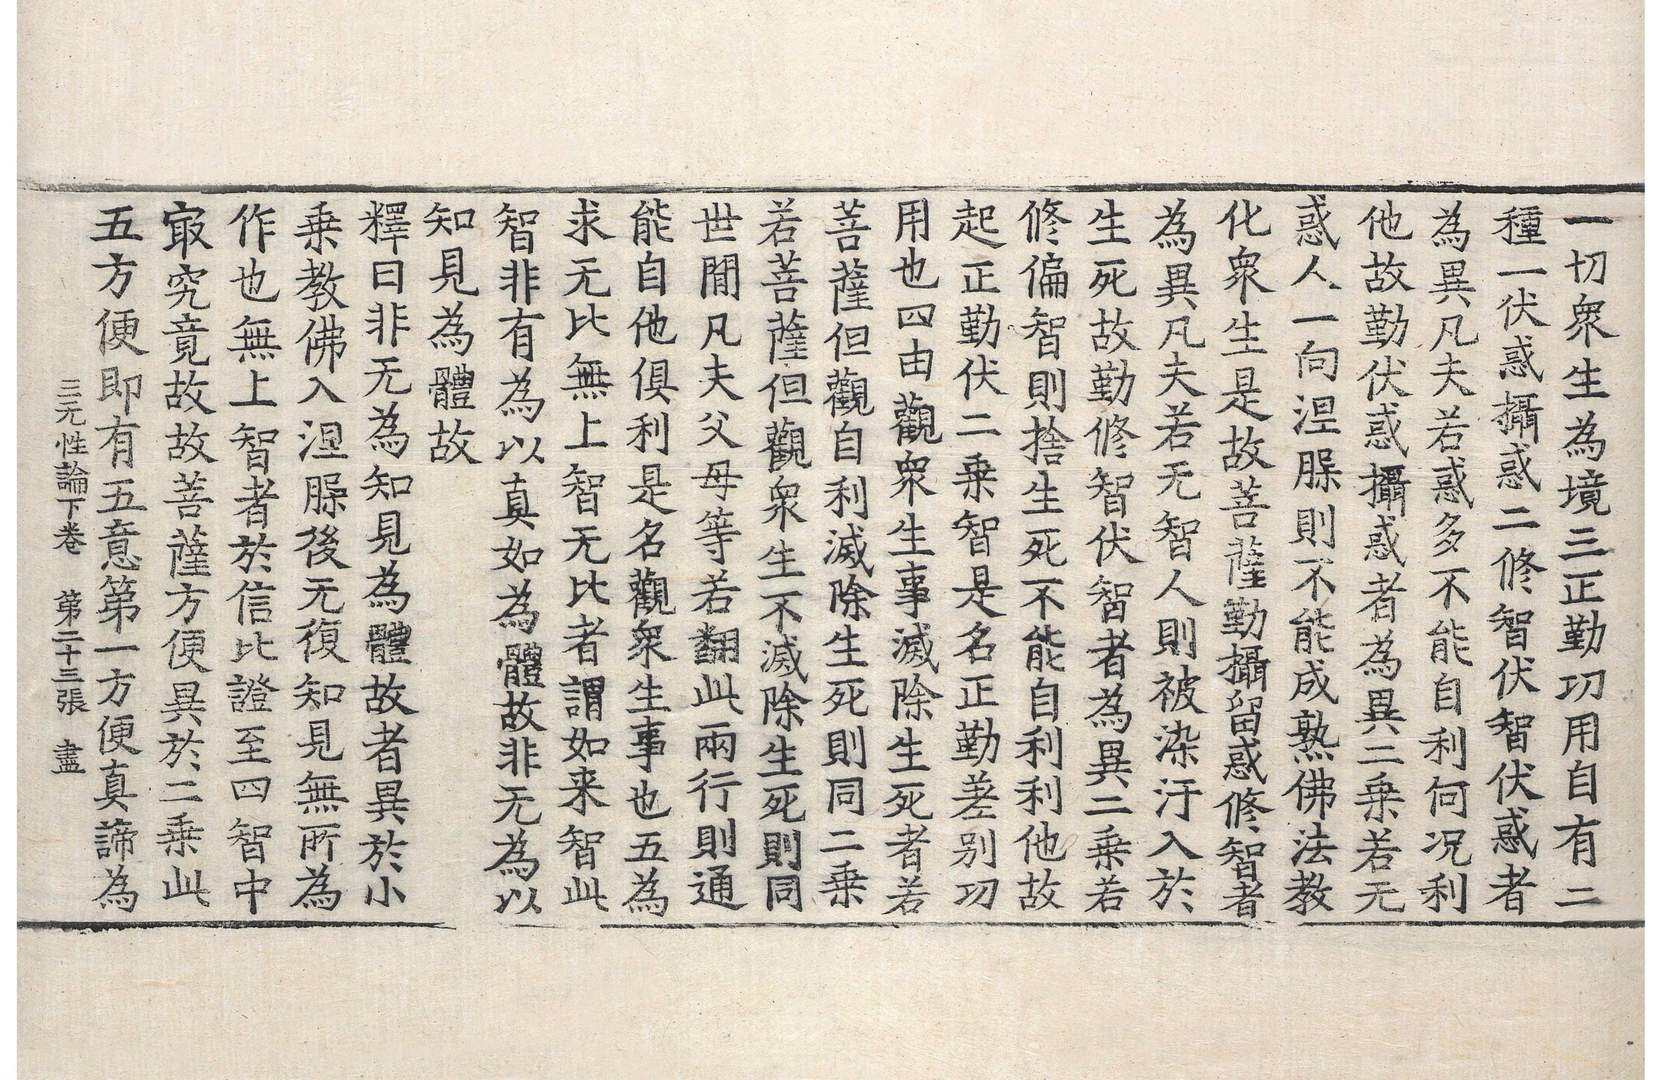 一切衆生為境三正勤功用自有二
種一伏惑攝惑二修智伏智伏惑者
為異凡夫若惑多不能自利何况利
他故勤伏惑攝惑者為異二乗若无
惑人一向涅槃則不能成熟佛法教
化衆生是故菩薩勤攝留惑修智者
為異凡夫若无智人則被染汙入於
生死故勤修智伏智者為異二乗若
修偏智則捨生死不能自利利他故
起正勤伏二乗智是名正勤差别功
用也四由觀衆生事滅除生死者若
菩薩但觀自利滅除生死則同二乗
若菩薩但觀衆生不滅除生死則同
世間凡夫父母等若翻此兩行則通
能自他俱利是名觀衆生事也五為
求无比無上智无比者謂如来智此
智非有為以真如為體故非无為以
知見為體故
釋曰非无為知見為體故者異於小
乗教佛入涅槃後无復知見無所為
作也無上智者於信比證至四智中
㝡究竟故故菩薩方便異於二乗此
五方便即有五意第一方便真諦為
三无性論下卷　第二十三張　盡